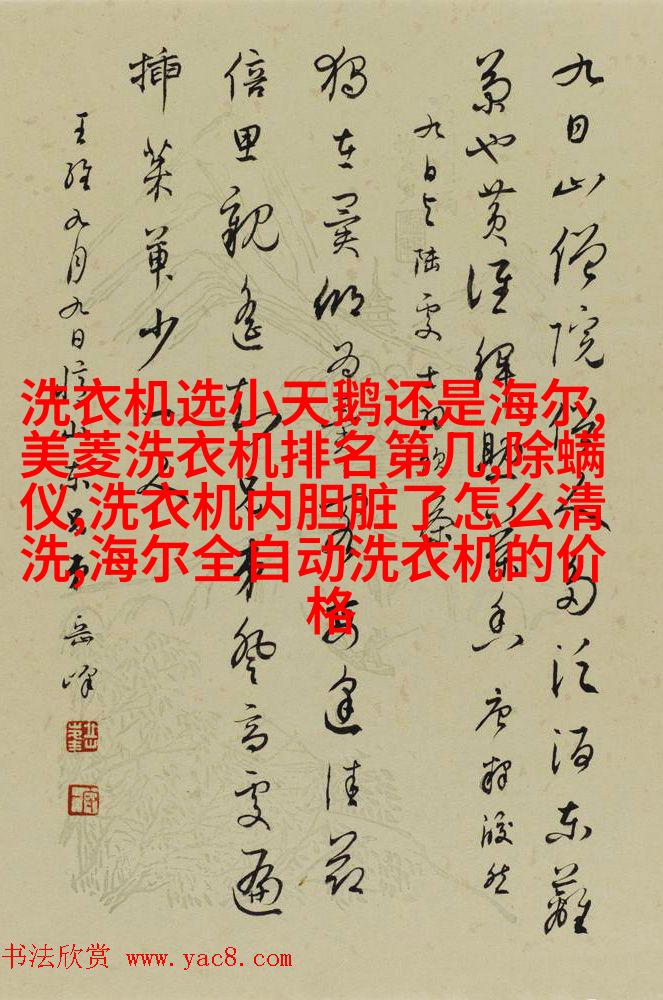 九日山僧院人多泛酒东籬
菊也黄谁解助茶香 唐释皎然
九日与陆处士羽饮茶
独在异乡为异客每逢佳节
倍思亲遥知兄弟登高处遍
插茱萸少一人
王维九月九日忆山东兄弟 岳峰
洗衣机选小天鹅还是海尔,
美菱洗衣机排名第几,除螨
仪,洗衣机内胆脏了怎么清
洗,海尔全自动洗衣机的价
格
书法欣赏 www.yac8.com